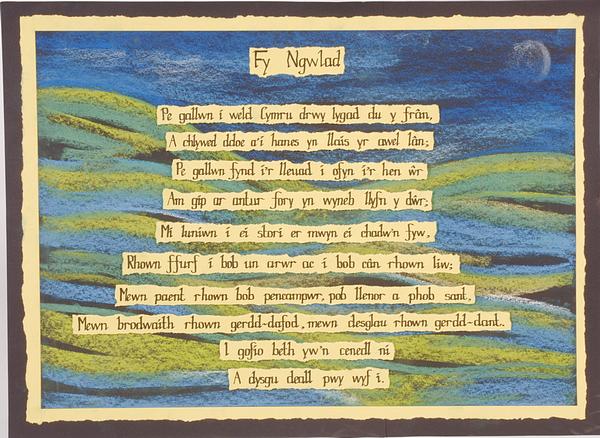 Fy Ngwlad
Pe gallwn i weld Cymru drwy lygad du y frân,
A chlywed ddoe a'i hanes yn llais yr awel lân;
Pe gallwn fynd i'r lleuad i ofyn i'r hen ŵr
Am gip ar antur fory yn wyneb llyfn y dŵr;
Mi luniwn i ei stori er mwyn ei chadw'n fyw,
Rhown ffurf i bob un arwr ac i bob cân rhown liw;
Mewn paent rhown bob pencampwr, pob llenor a phob sant,
Mewn brodwaith rhown gerdd-dafod, mewn desglau rhown gerdd-dant.
I gofio beth yw'n cenedl ni
A dysgu deall pwy wyf i.